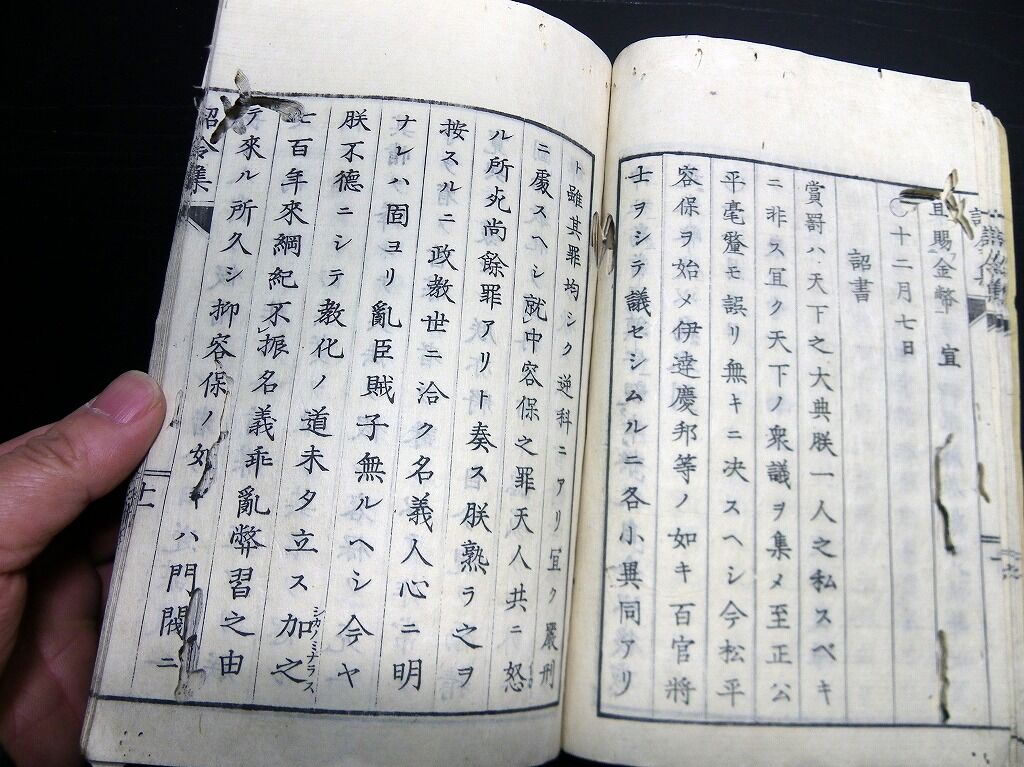 且賜金幣 宣
○十二月七日
詔書
賞罰ハ天下之大典朕一人之私スベキ
ニ非ス冝ク天下ノ衆議ヲ集メ至正公
平毫釐モ誤リ無キニ决スヘシ今松平
容保ヲ始メ伊達慶邦等ノ如キ百官將
士ヲシテ議セシムルニ各小異同アリ
ト雖其罪均シク逆科ニアリ冝ク嚴刑
ニ處スヘシ就中容保之罪天人共ニ怒
ル所死尚餘罪アリト奏ス朕熟ラ之ヲ
按スルニ政教世ニ洽ク名義人心ニ明
ナレハ固ヨリ亂臣賊子無ルヘシ今ヤ
朕不德ニシテ教化ノ道未タ立ス加之
シカノミナラス
七百年來綱紀不振名義乖亂弊習之由
テ來ル所久シ抑容保ノ如キハ門閥ニ
詔令集